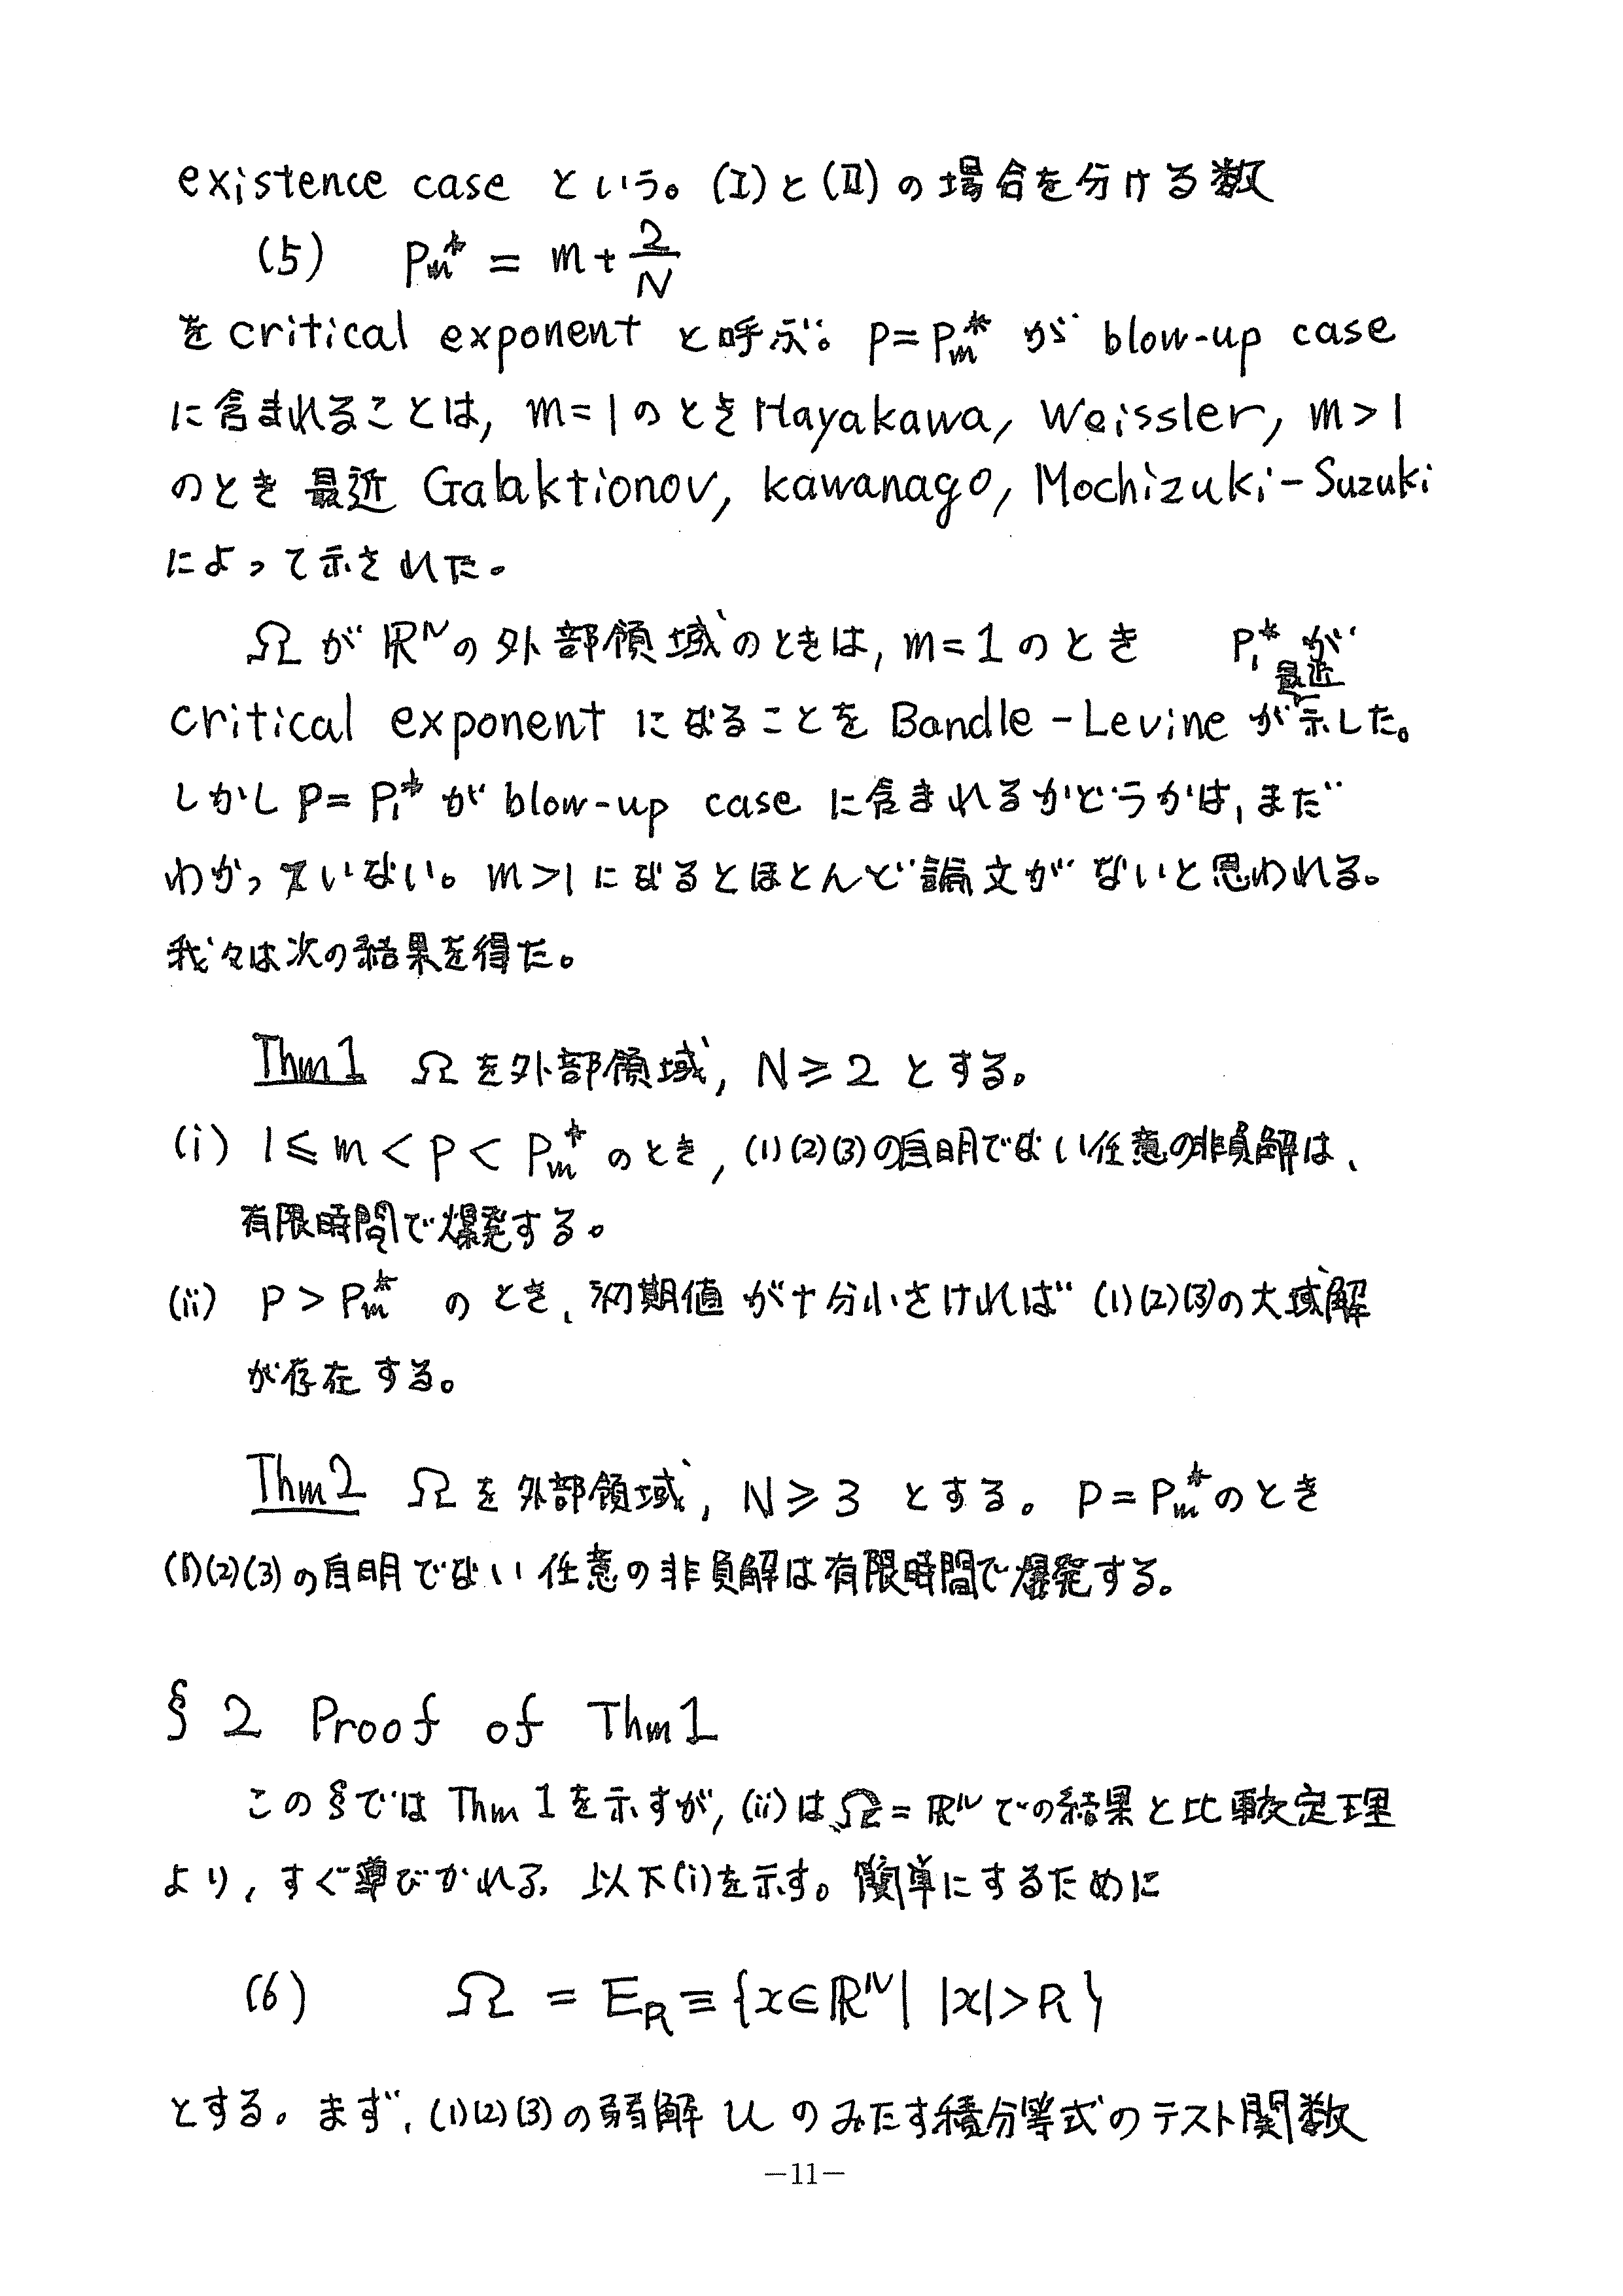 existence case という。(I)と(II)の場合を分ける数
(5) P_m^* = m + 2/N
を critical exponent と呼ぶ。 p = P_m^* が blow-up case
に含まれることは, m=1のとき Hayakawa, Weissler, m>1
のとき 最近 Galaktionov, Kawanago, Mochizuki-Suzuki
によって示された。
Ω が ℝ^N の外部領域のときは, m=1 のとき P_1^* が
critical exponent になることを Bandle-Levine が最近示した。
しかし p = P_1^* が blow-up case に含まれるかどうかは, まだ
わかっていない。 m>1 になるとほとんど論文がないと思われる。
我々は次の結果を得た。
Thm1 Ω を外部領域, N ≥ 2 とする。
(i) 1 ≤ m < p < P_m^* のとき, (1)(2)(3)の自明でない任意の非負解は、
有限時間で爆発する。
(ii) p > P_m^* のとき、初期値が十分小さければ (1)(2)(3)の大域解
が存在する。
Thm2 Ω を外部領域, N ≥ 3 とする。 p = P_m^* のとき
(1)(2)(3)の自明でない任意の非負解は有限時間で爆発する。
§2 Proof of Thm1
この§では Thm 1 を示すが, (ii)は、Ω = ℝ^N での結果と比較定理
より, すぐ導びかれる。以下(i)を示す。簡単にするために
(6) Ω = E_R ≡ {x ∈ ℝ^N | |x| > R}
とする。まず、(1)(2)(3)の弱解 u のみたす積分等式のテスト関数
—11—